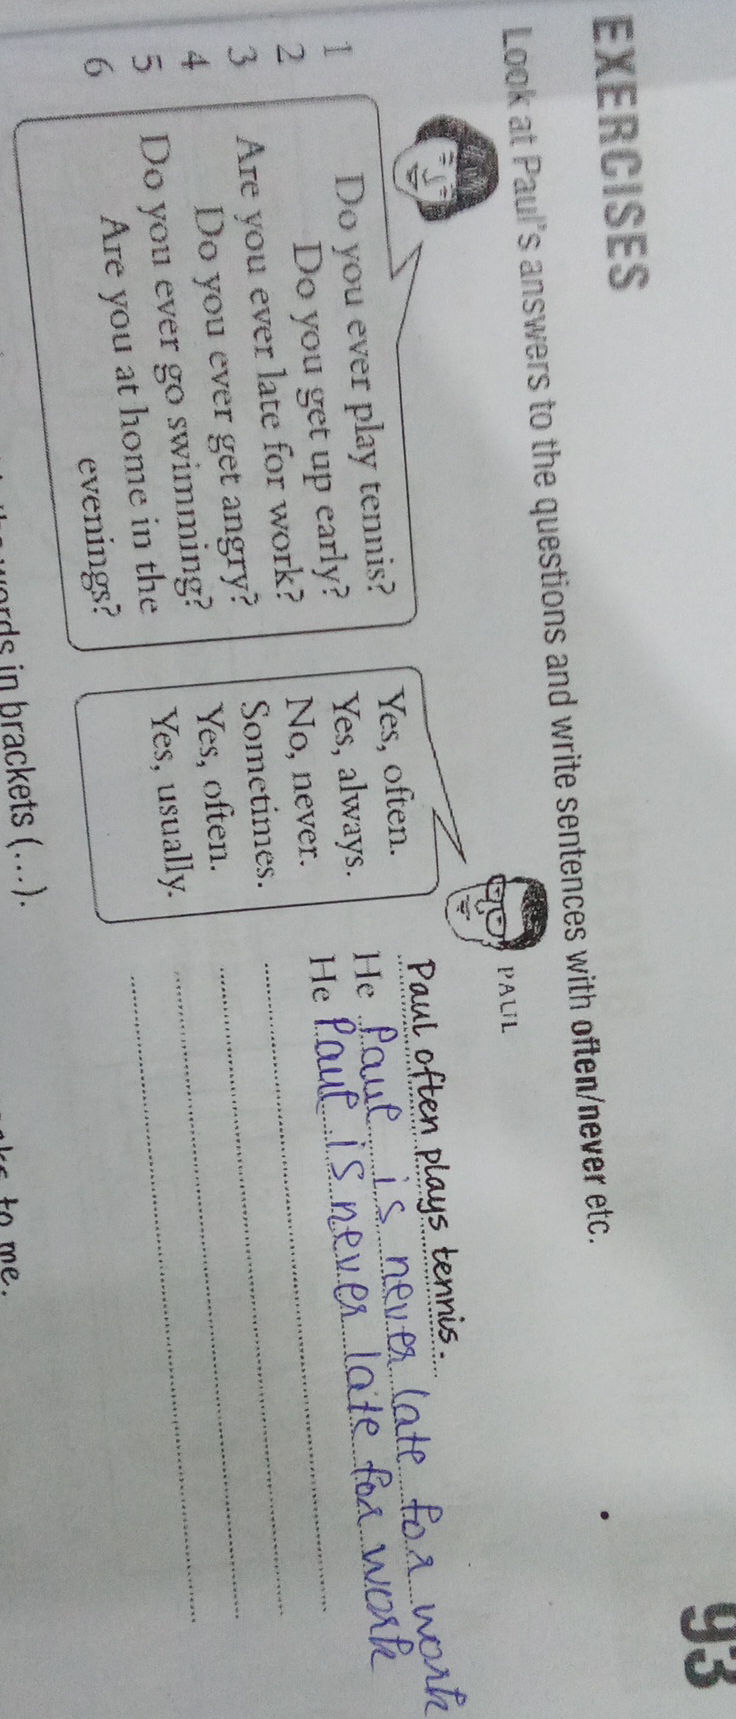 93
EXERCISES
Look at Paul's answers to the questions and write sentences with often/never etc.
PAUL
1 Do you ever play tennis? Yes, often. Paul often plays tennis.
2 Do you get up early? Yes, always. He Paul is never late for work
3 Are you ever late for work? No, never. He Paul is never late for work
4 Do you ever get angry? Sometimes.
5 Do you ever go swimming? Yes, often.
6 Are you at home in the Yes, usually.
evenings?
words in brackets (...).
to me.